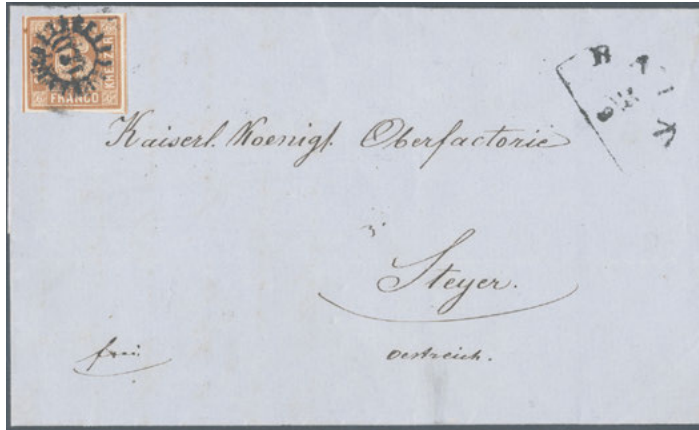 FRANCO
KREUZER
Kaiserl. Koenigl. Oberfactorie
Steyer.
frei.
Oestreich.